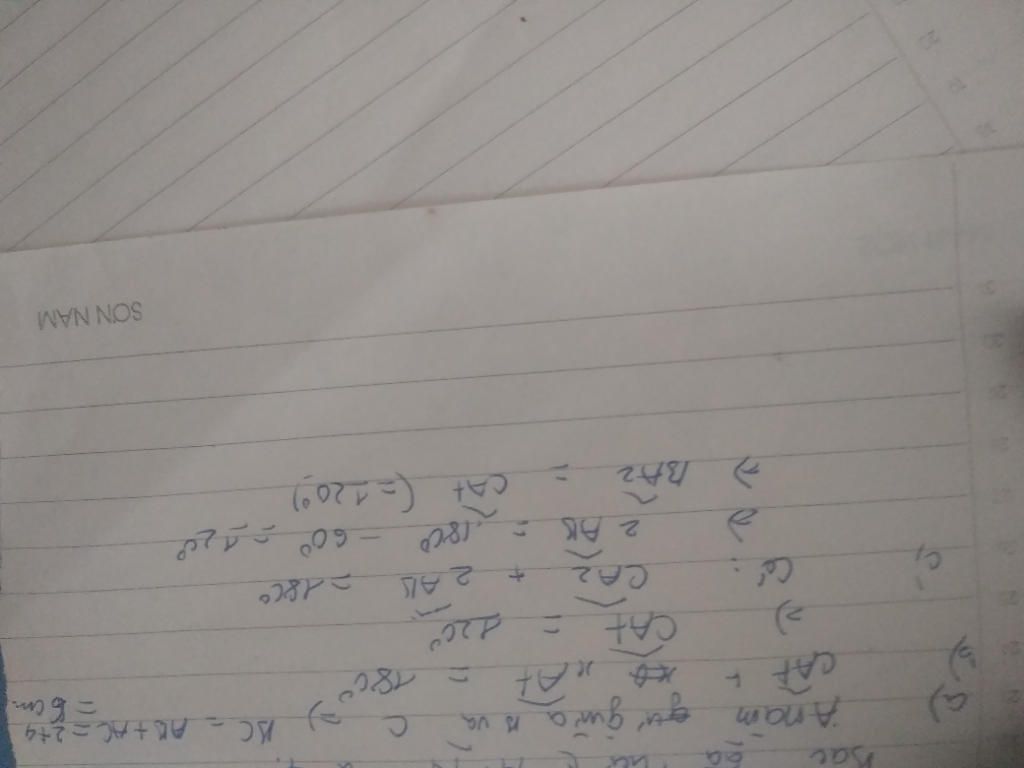 a) A nằm giữa B và C => BC = AB + AC = 2+4
= 6 cm.
b) CAt + BAt = 180°
=> CAt = 120°
c) Có: CAz + zAB = 180°
=> zAB = 180° - 60° = 120°
=> BAz = CAt (= 120°)
SON NAM